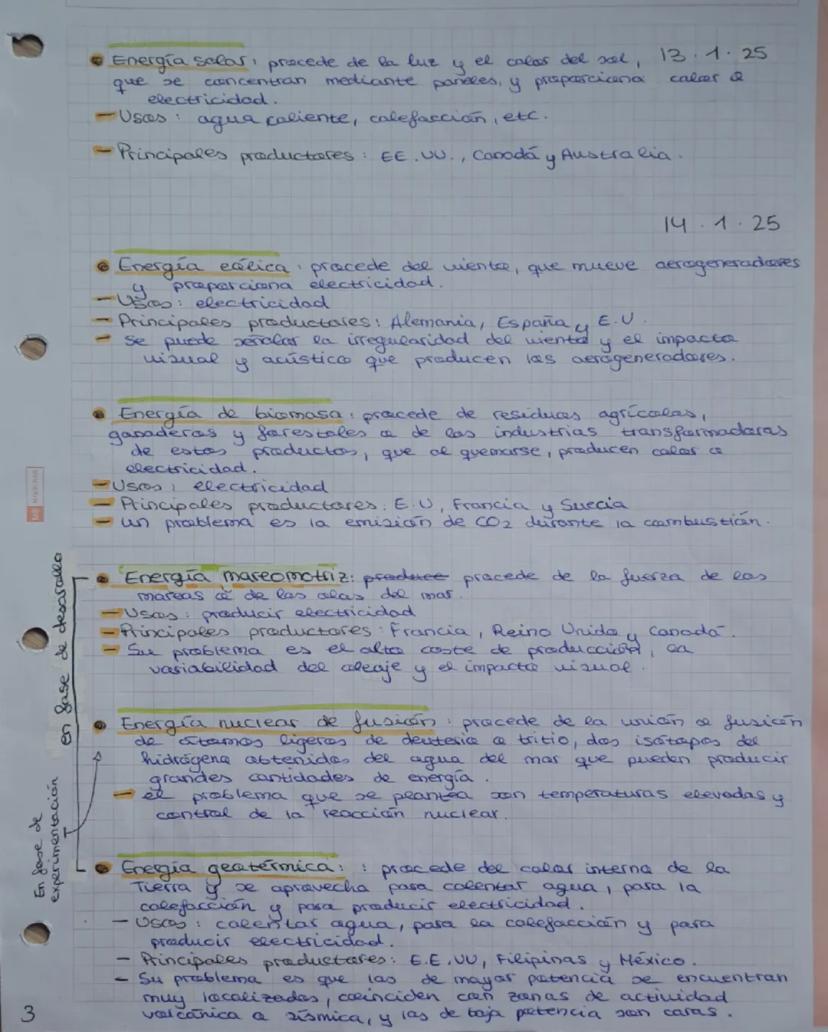 • Energía solar: procede de la luz y el calor del sol, 13.1.25
que se concentran mediante paneles, y proporciona calor o
electricidad.
- Usos: agua caliente, calefacción, etc.
- Principales productores: EE.UU., Canadá y Australia.
14.1.25
• Energía eólica: procede del viento, que mueve aerogeneradores
y proporciona electricidad.
- Usos: electricidad
- Principales productores: Alemania, España y E.U.
- Se puede señalar la irregularidad del viento y el impacto
visual y acústico que producen los aerogeneradores.
• Energía de biomasa: procede de residuos agrícolas,
ganaderos y forestales o de las industrias transformadoras
de estos productos, que al quemarse, producen calor o
electricidad.
- Usos: electricidad
- Principales productores: E.U, Francia y Suecia
- un problema es la emisión de CO2 durante la combustión.
• Energía mareomotriz: produce procede de la fuerza de las
mareas o de las olas del mar.
- Usos: producir electricidad
- Principales productores: Francia, Reino Unido y Canadá.
- Su problema es el alto coste de producción, la
variabilidad del oleaje y el impacto visual.
en fase de desarrollo
• Energía nuclear de fusión: procede de la unión o fusión
de átomos ligeros de deuterio o tritio, dos isótopos del
hidrógeno obtenidos del agua del mar que pueden producir
grandes cantidades de energía.
- el problema que se plantea son temperaturas elevadas y
control de la reacción nuclear.
En fase de
experimentación
• Energía geotérmica: : procede del calor interno de la
Tierra y se aprovecha para calentar agua, para la
calefacción y para producir electricidad.
- Usos: calentar agua, para la calefacción y para
producir electricidad.
- Principales productores: E.E.UU, Filipinas y México.
- Su problema es que las de mayor potencia se encuentran
muy localizadas, coinciden con zonas de actividad
volcánica o sísmica, y las de baja potencia son caras.
3